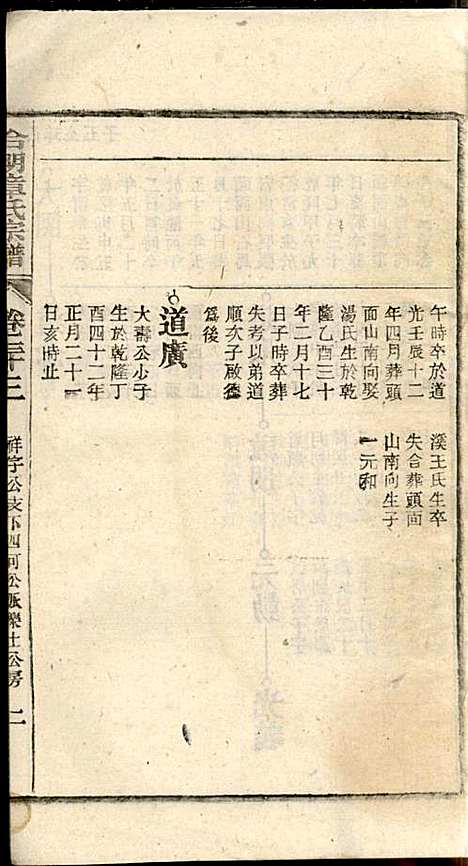 午時卒於道
光壬辰十二
年四月葬頭
面山南向娶
湯氏生於乾
隆乙酉三十
年二月十七
日子時卒葬
失考以弟道
順次子啟德
爲後
道廣
大壽公少子
生於乾隆丁
酉四十二年
正月二十一
日亥時止
溪王氏生卒
失合葬頭面
山南向生子
一元和
章氏宗譜
卷三十二
祥字公支下四河公脈
士公房
二